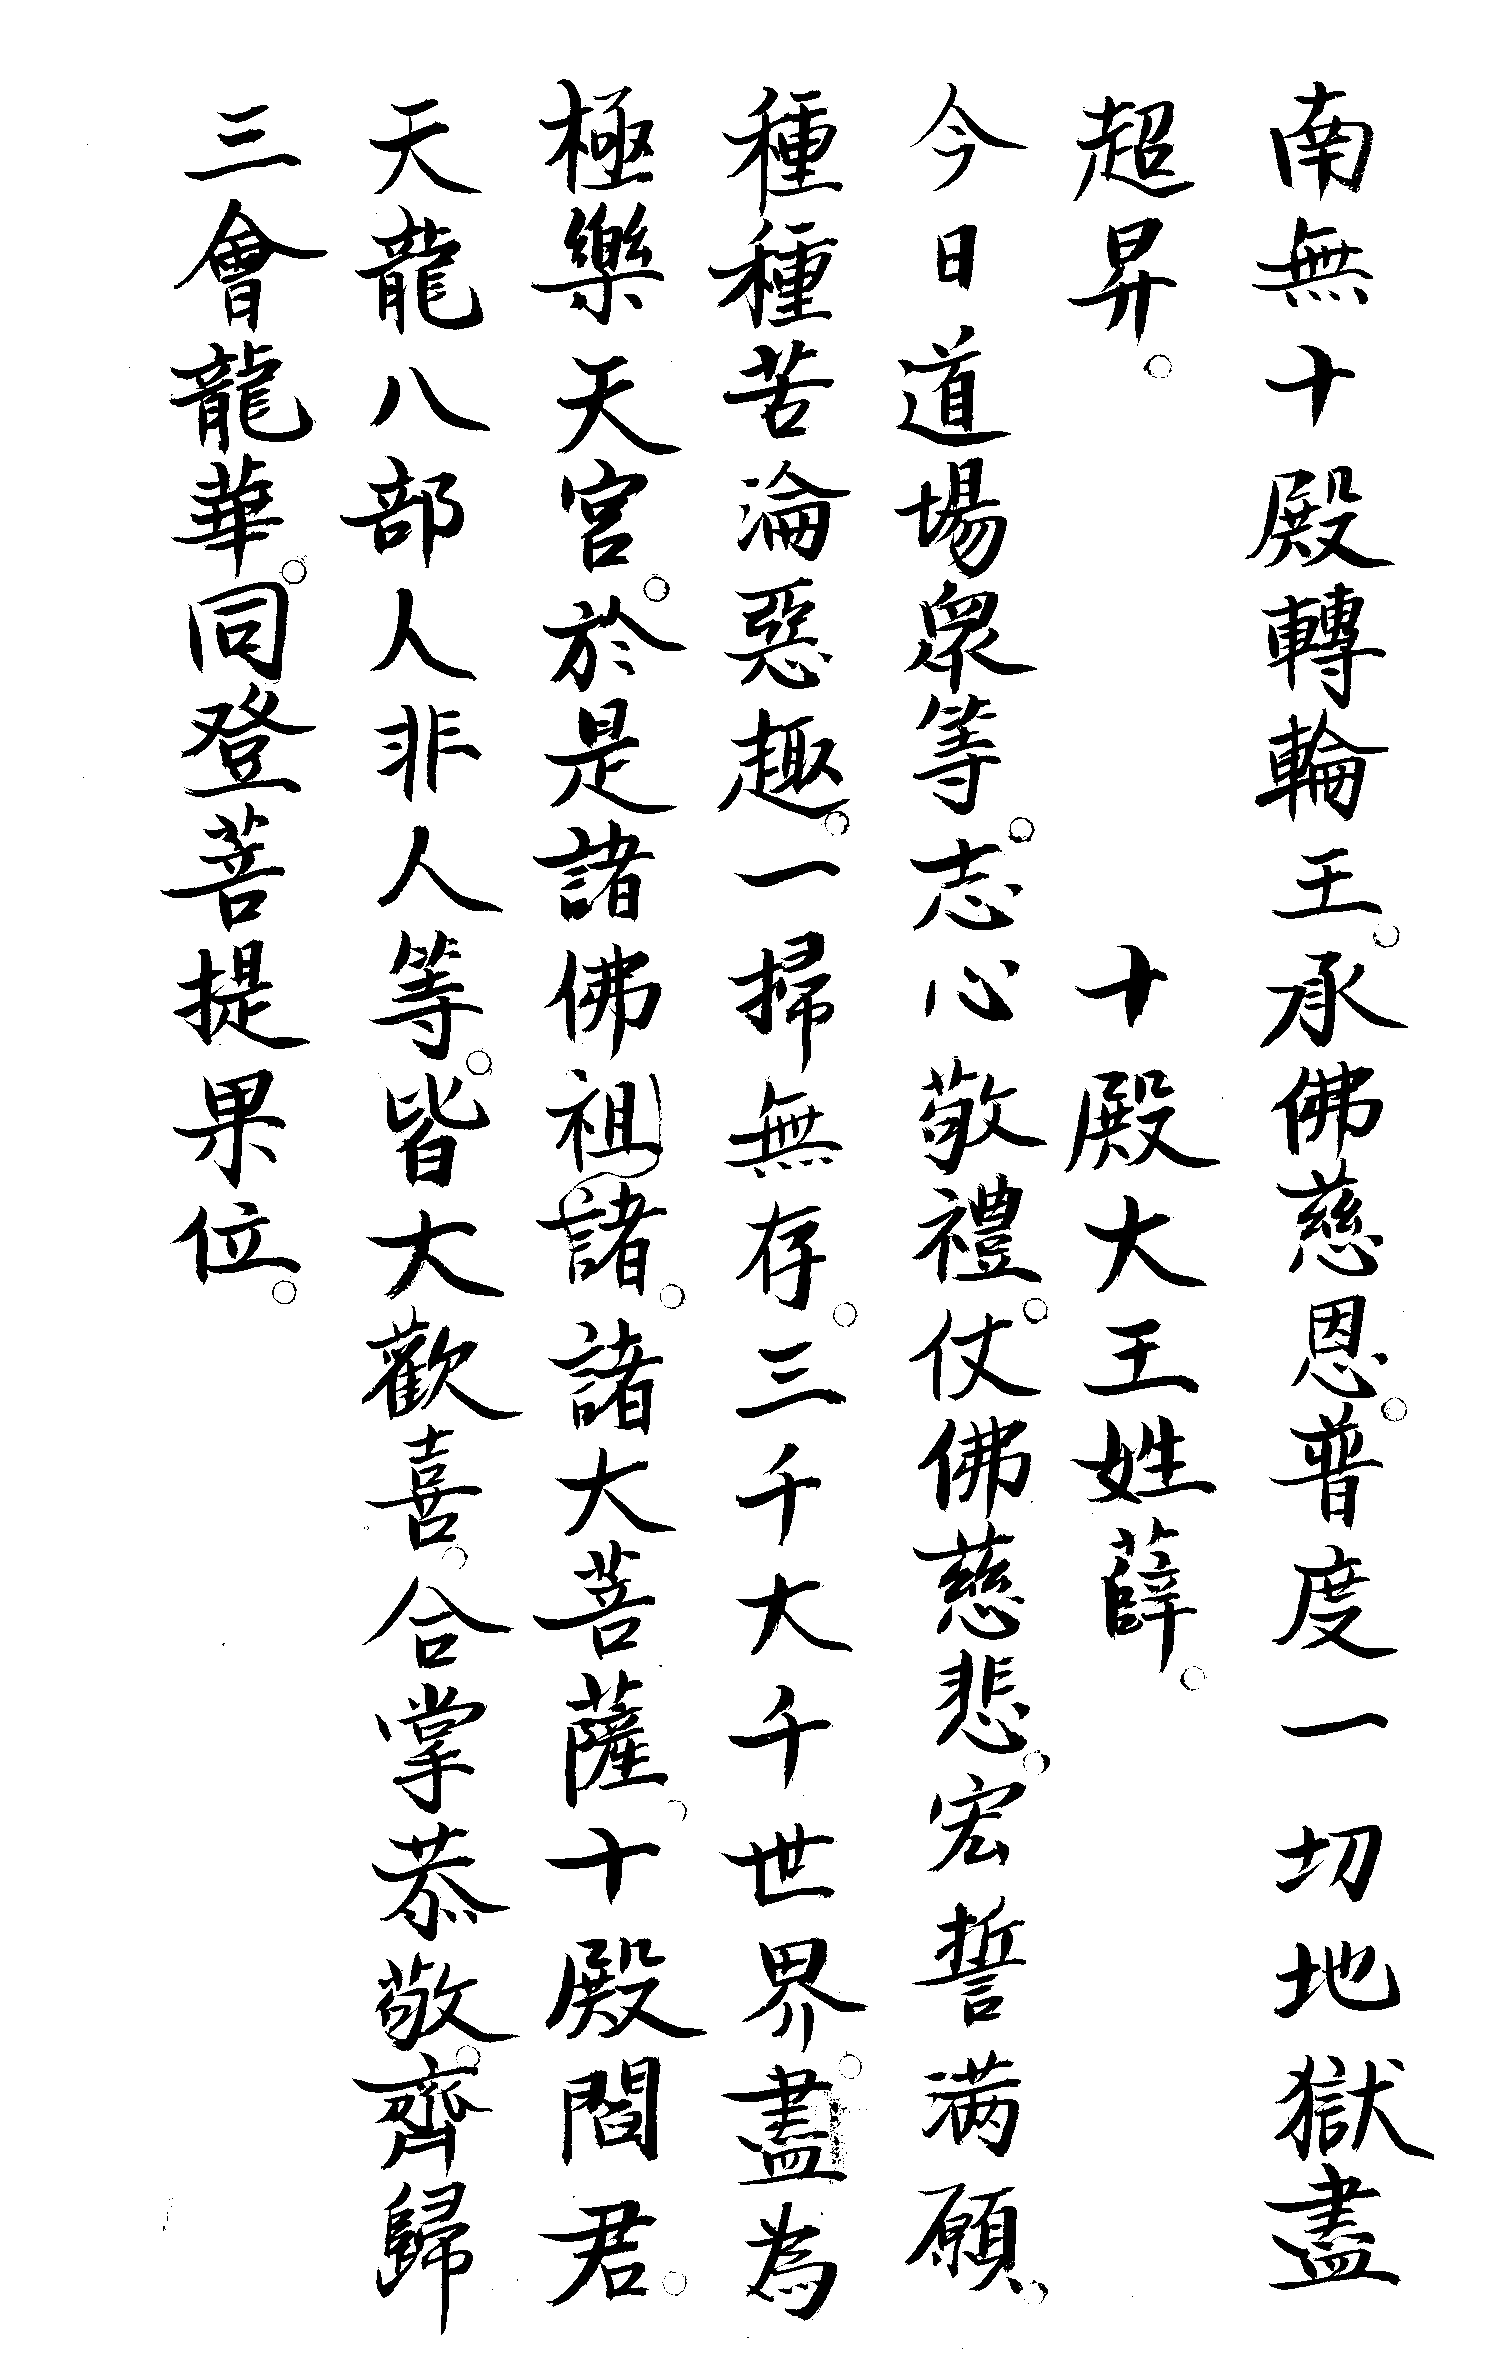 南無十殿轉輪王。承佛慈恩。普度一切地獄盡
超昇。 十殿大王姓薛。
今日道場眾等。志心敬禮。仗佛慈悲。宏誓满願。
種種苦淪惡趣。一掃無存。三千大千世界。盡為
極樂天宮。於是諸佛祖諸。諸大菩薩。十殿閻君。
天龍八部人非人等。皆大歡喜。合掌恭敬。齊歸
三會龍華。同登菩提果位。